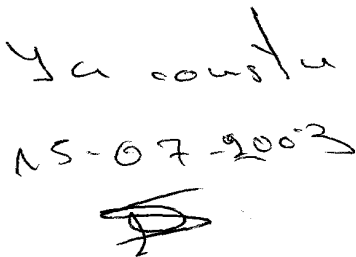 Ya consta
15-07-2003